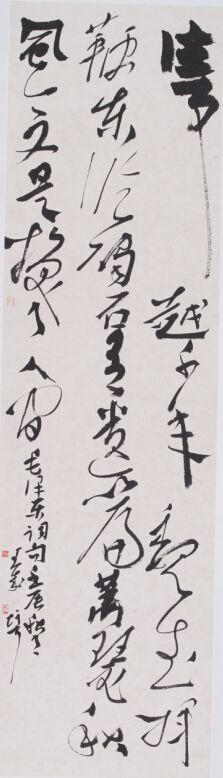 事越千年魏武挥
鞭东临碣石有遗篇萧瑟秋
风今又是换了人间
毛泽东词句壬辰